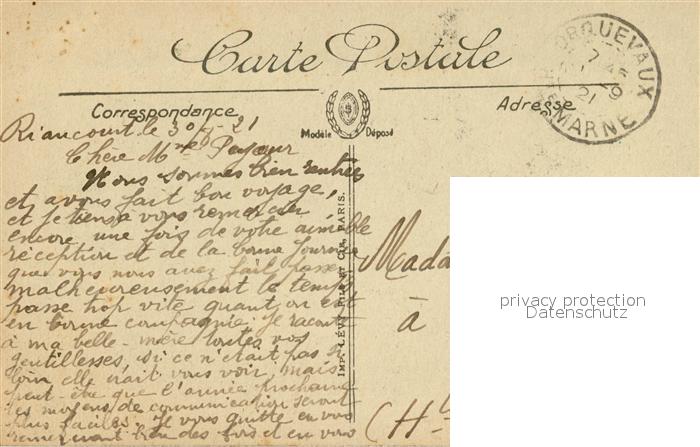 Carte Postale
ORQUEVAUX
21
MARNE
Correspondance
Adresse
Modèle Déposé
Riancourt le 30 - 21
Chère Mme
Nous sommes bien rentrés
et avons fait bon voyage,
et je tiens à vous remercier
encore une fois de votre aimable
réception et de la bonne journée
que vous nous avez fait passer
malheureusement le temps
passe trop vite quant on est
en bonne compagnie. Je raconte
à ma belle-mère toutes vos
gentillesses, si ce n'était pas si
loin elle irait vous voir, mais
peut-être que l'année prochaine
les moyens de communication seront
plus faciles. Je vous quitte en vous
remerciant bien des fois et en vous
IMP. LÉVY FILS ET CIE, PARIS.
Mada
à
(Hte
privacy protection
Datenschutz